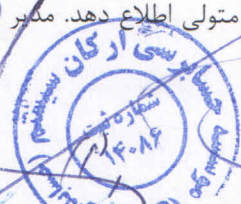 متولی اطلاع دهد. مدیر
موسسه حسابرسی ارکان سیستم
شماره ثبت
۱۴۰۸۶